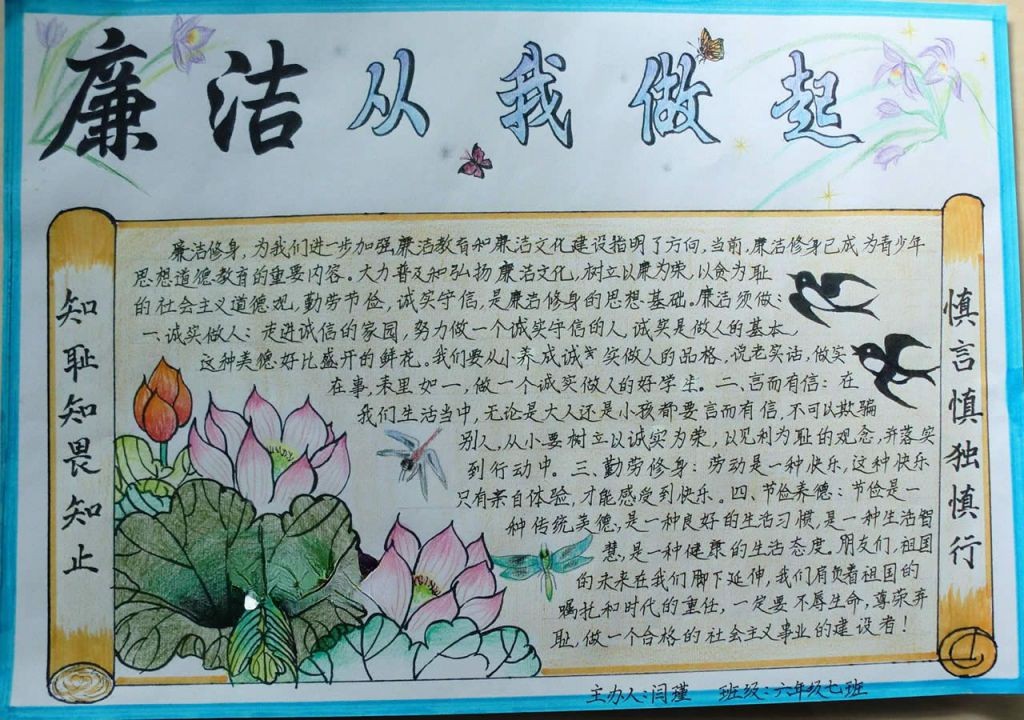 廉洁从我做起
知耻知畏知止
廉洁修身,为我们进一步加强廉洁教育和廉洁文化建设指明了方向,当前,廉洁修身已成为青少年
思想道德教育的重要内容。大力普及和弘扬廉洁文化,树立以廉为荣,以贪为耻
的社会主义道德观,勤劳节俭,诚实守信,是廉洁修身的思想基础。廉洁须做:
一、诚实做人:走进诚信的家园,努力做一个诚实守信的人,诚实是做人的基本,
这种美德好比盛开的鲜花。我们要从小养成诚实做人的品格,说老实话,做实
在事,表里如一,做一个诚实做人的好学生。二、言而有信:在
我们生活当中,无论是大人还是小孩都要言而有信,不可以欺骗
别人,从小要树立以诚实为荣,以见利为耻的观念,并落实
到行动中。三、勤劳修身:劳动是一种快乐,这种快乐
只有亲自体验,才能感受到快乐。四、节俭养德:节俭是一
种传统美德,是一种良好的生活习惯,是一种生活智
慧,是一种健康的生活态度。朋友们,祖国
的未来在我们脚下延伸,我们肩负着祖国的
嘱托和时代的重任,一定要不辱生命,尊荣弃
耻,做一个合格的社会主义事业的建设者!
慎言慎独慎行
主办人:闫瑾 班级:六年级七班